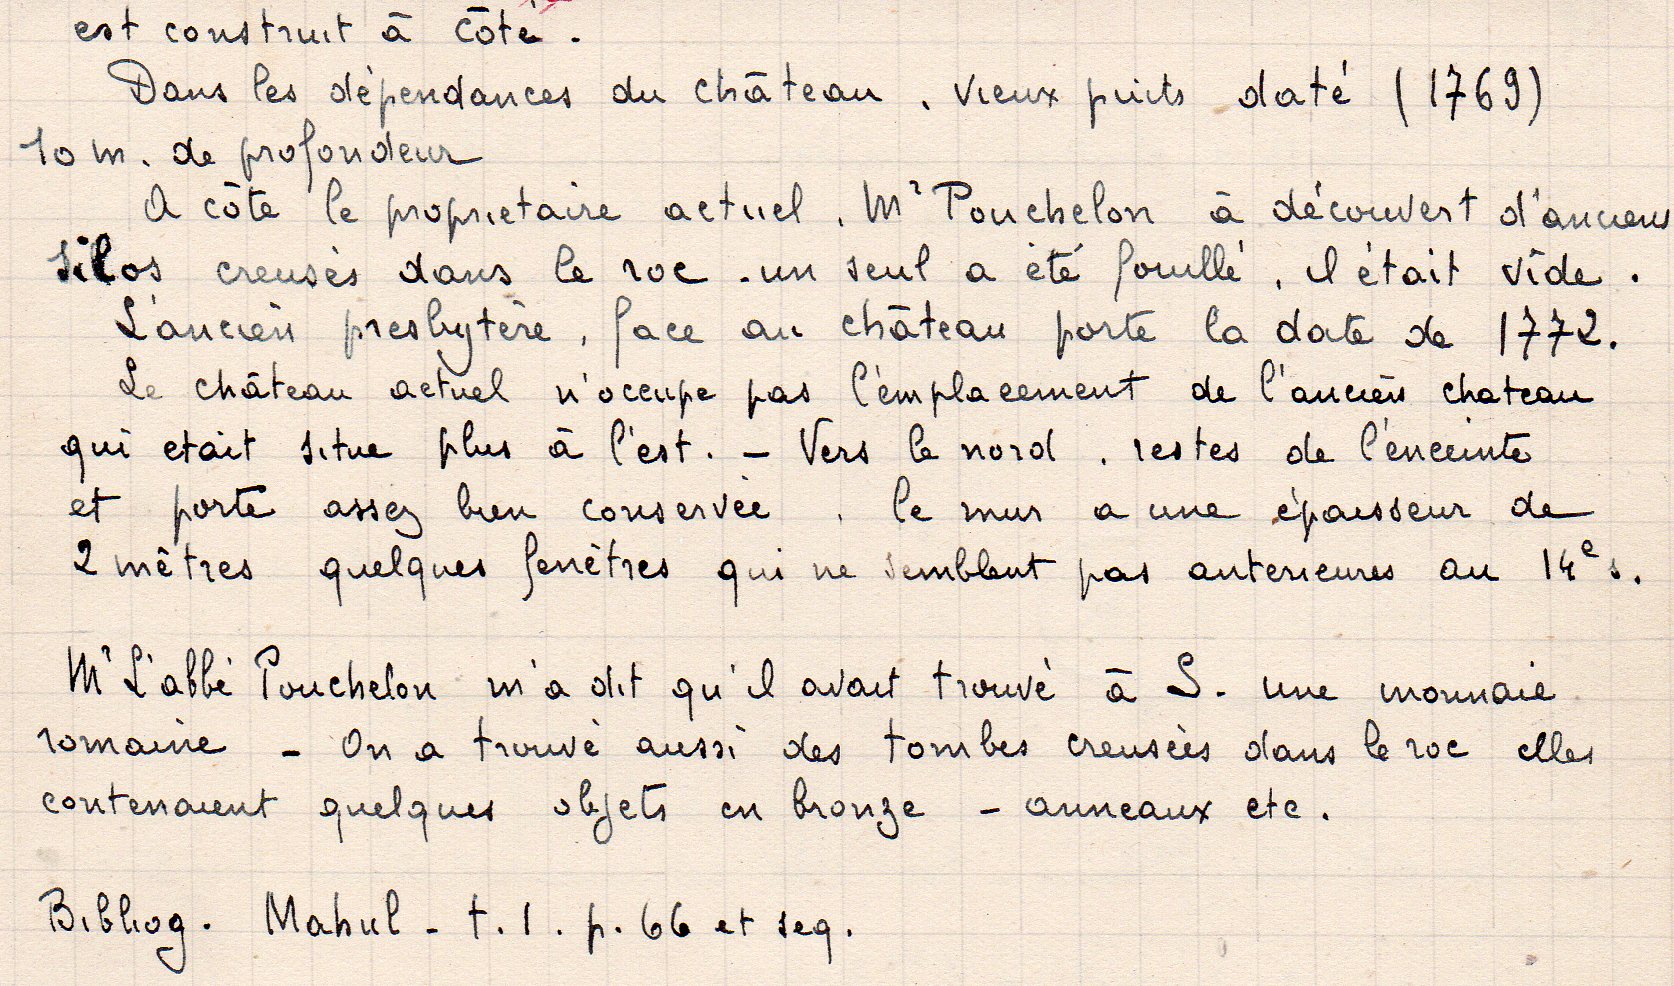 est construit à côté.
Dans les dépendances du château, vieux puits daté (1769)
10 m. de profondeur
A côté le proprietaire actuel, Mr Pouchelon à découvert d'anciens
silos creusés dans le roc - un seul a été fouillé, il était vide.
L'ancien presbytère, face au château porte la date de 1772.
Le château actuel n'occupe pas l'emplacement de l'ancien chateau
qui etait situe plus à l'est. - Vers le nord, restes de l'enceinte
et porte assez bien conservée, le mur a une épaisseur de
2 mètres quelques fenêtres qui ne semblent pas anterieures au 14e s.
Mr L'abbé Pouchelon m'a dit qu'il avait trouvé à S. une monnaie
romaine - On a trouvé aussi des tombes creusées dans le roc elles
contenaient quelques objets en bronze - anneaux etc.
Bibliog. Mahul - t. 1. p. 66 et seq.